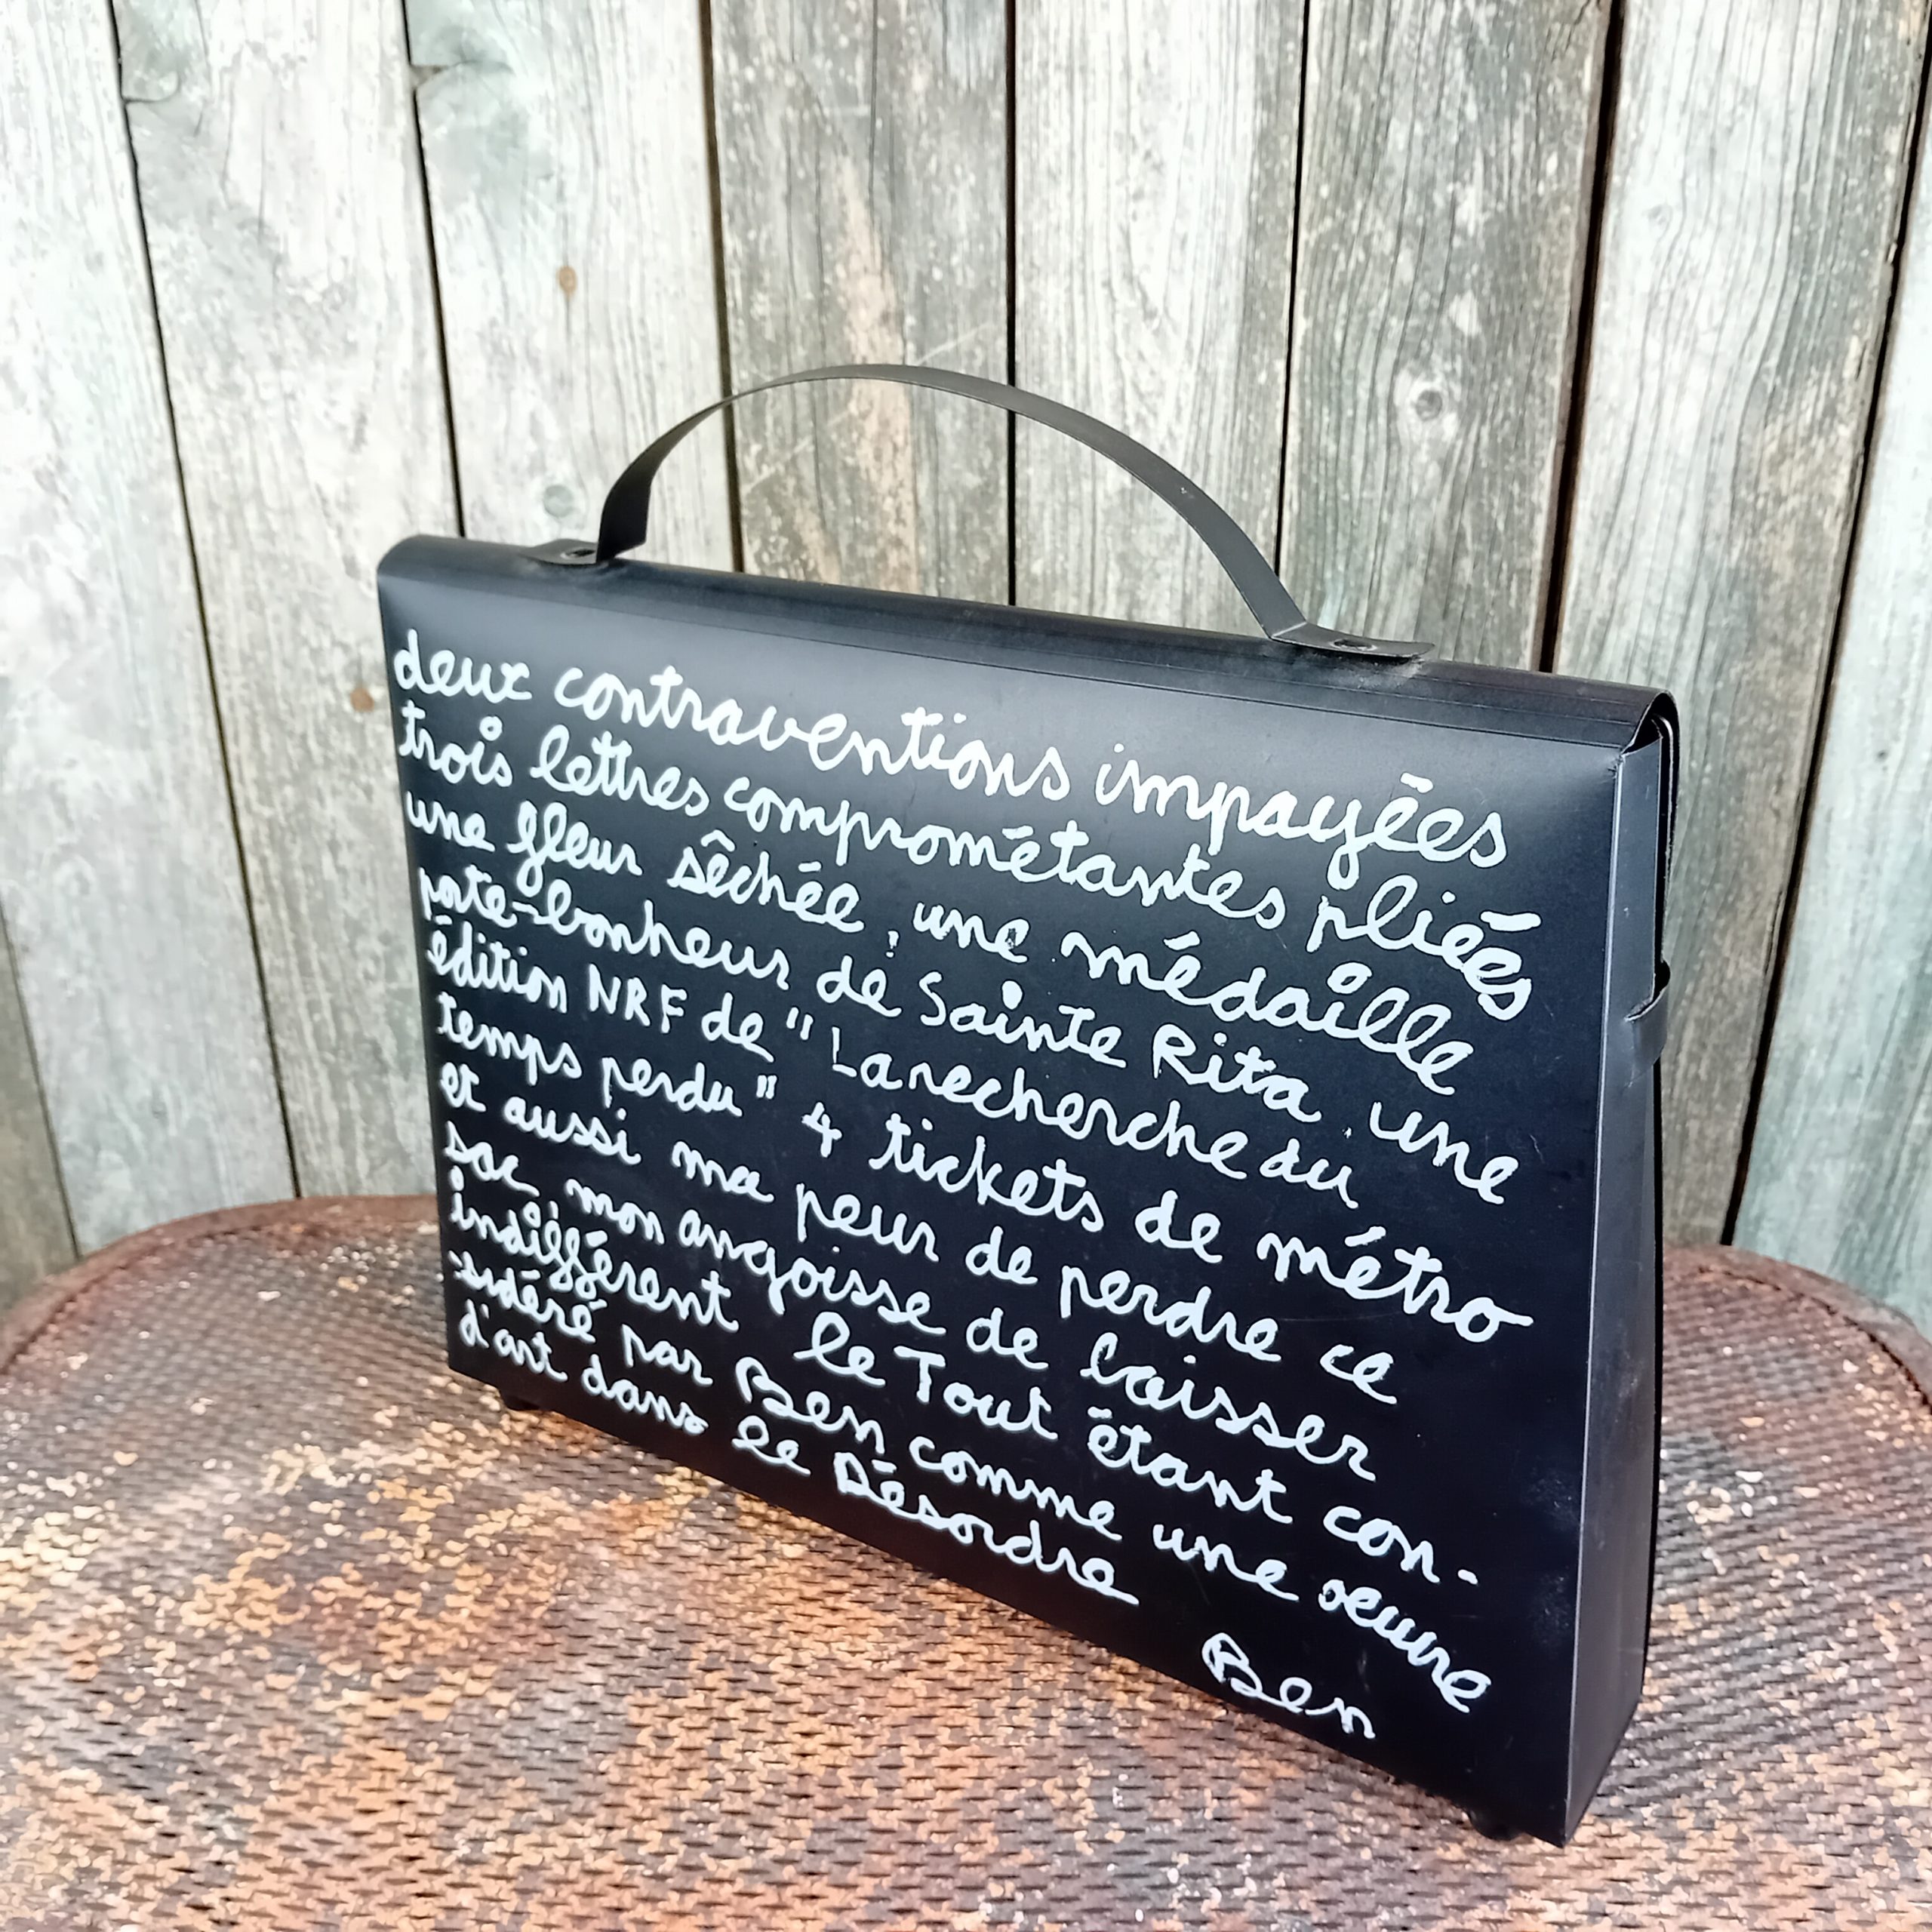 deux contraventions impayées
trois lettres comprométantes pliées
une fleur sêchée, une médaille
porte-bonheur de Sainte Rita une
édition NRF de "La recherche du
temps perdu" 4 tickets de métro
et aussi ma peur de perdre ce
sac, mon angoisse de laisser
indifférent le Tout étant con-
sidéré par Ben comme une œuvre
d'art dans le Désordre
Ben